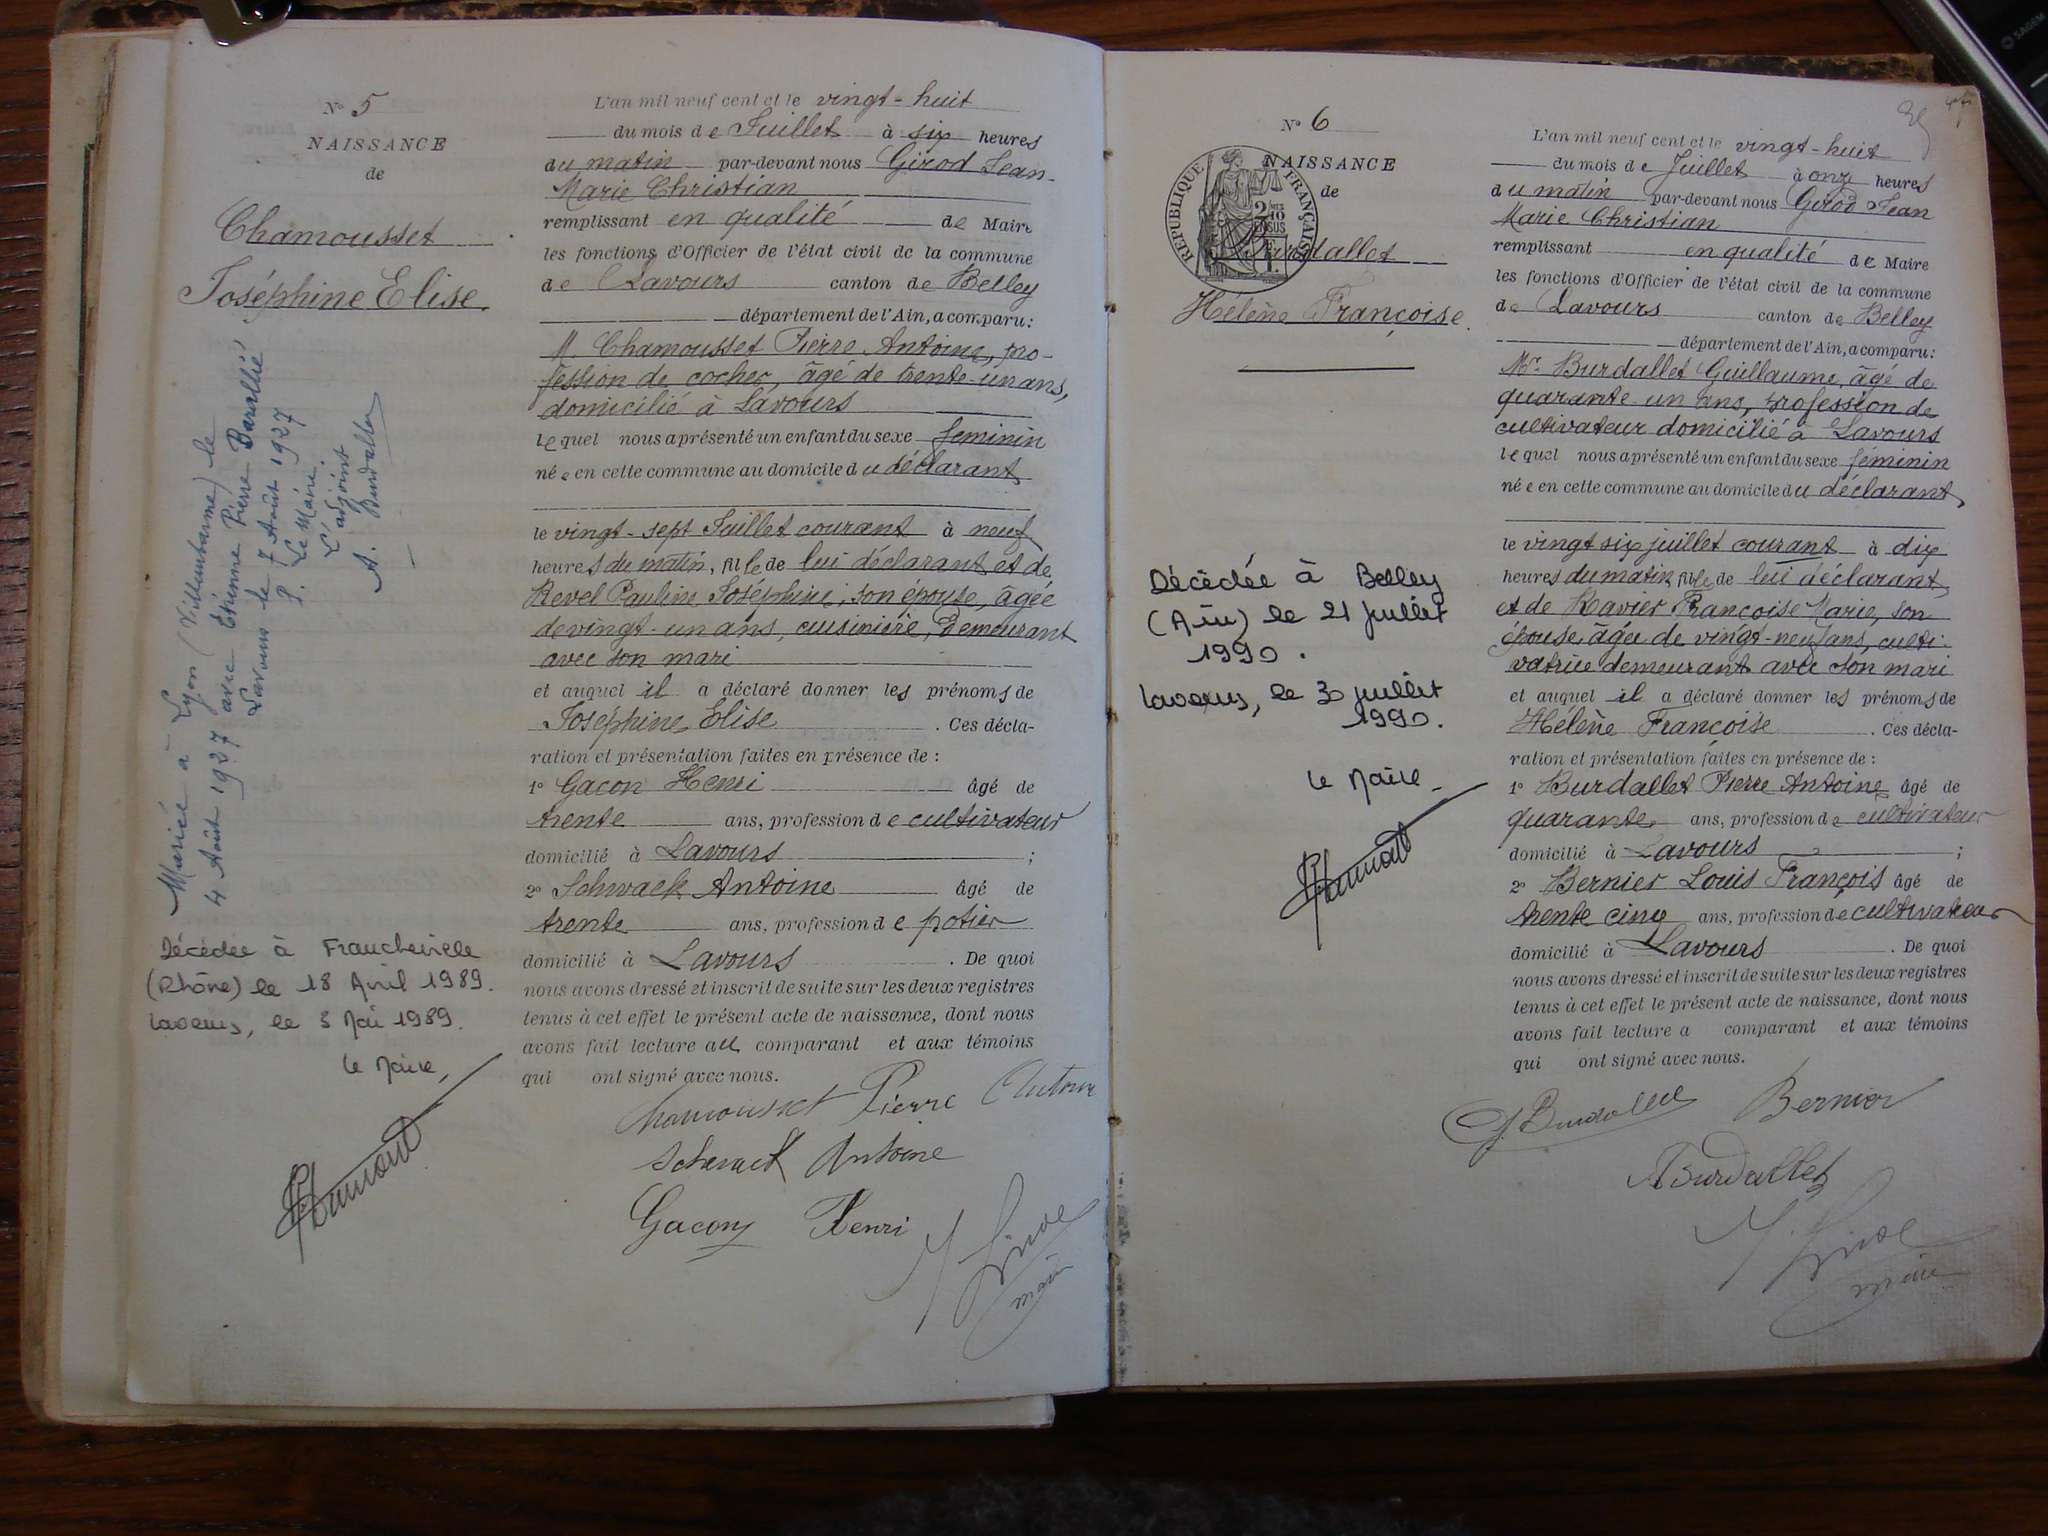 N° 5
NAISSANCE
de
Chamousset
Joséphine Elise
Mariée à Lyon (Villeurbanne) le
4 Août 1927 avec Etienne Pierre Barallié
Lavours le 7 Août 1927
P. Le Maire
L'adjoint
A. Burdallet
Décédée à Francheville
(Rhône) le 18 Avril 1989.
Lavours, le 3 Mai 1989.
Le Maire,
L'an mil neuf cent et le vingt-huit
du mois de Juillet à six heures
du matin par-devant nous Girod Jean-
Marie Christian
remplissant en qualité de Maire
les fonctions d'Officier de l'état civil de la commune
de Lavours canton de Belley
département de l'Ain, a comparu:
M. Chamousset Pierre Antoine, pro-
fession de cocher, âgé de trente-un ans,
domicilié à Lavours
lequel nous a présenté un enfant du sexe feminin
née en cette commune au domicile du déclarant
le vingt-sept Juillet courant à neuf
heures du matin, fille de lui déclarant et de
Revel Pauline Joséphine, son épouse, âgée
de vingt-un ans, cuisinière, demeurant
avec son mari
et auquel il a déclaré donner les prénoms de
Joséphine Elise. Ces décla-
ration et présentation faites en présence de :
1° Gacon Henri âgé de
trente ans, profession de cultivateur
domicilié à Lavours ;
2° Schwack Antoine âgé de
trente ans, profession de potier
domicilié à Lavours. De quoi
nous avons dressé et inscrit de suite sur les deux registres
tenus à cet effet le présent acte de naissance, dont nous
avons fait lecture au comparant et aux témoins
qui ont signé avec nous.
Chamousset Pierre Antoine
Schwack Antoine
Gacon Henri
M Girod
maire
N° 6
NAISSANCE
de
RÉPUBLIQUE FRANÇAISE
2/10 EN SUS
Burdallet
Hélène Françoise.
Décédée à Belley
(Ain) le 21 juillet
1990.
Lavours, le 30 juillet
1990.
Le Maire
L'an mil neuf cent et le vingt-huit
du mois de Juillet à onze heures
du matin par-devant nous Girod Jean
Marie Christian
remplissant en qualité de Maire
les fonctions d'Officier de l'état civil de la commune
de Lavours canton de Belley
département de l'Ain, a comparu:
Mr. Burdallet Guillaume, âgé de
quarante un ans, profession de
cultivateur domicilié à Lavours
lequel nous a présenté un enfant du sexe féminin
née en cette commune au domicile du déclarant,
le vingt six juillet courant à dix
heures du matin fille de lui déclarant,
et de Ravier Françoise Marie, son
épouse âgée de vingt-neuf ans, culti-
vatrice demeurant avec son mari
et auquel il a déclaré donner les prénoms de
Hélène Françoise. Ces décla-
ration et présentation faites en présence de :
1° Burdallet Pierre Antoine âgé de
quarante ans, profession de cultivateur
domicilié à Lavours ;
2° Bernier Louis François âgé de
trente cinq ans, profession de cultivateur
domicilié à Lavours. De quoi
nous avons dressé et inscrit de suite sur les deux registres
tenus à cet effet le présent acte de naissance, dont nous
avons fait lecture a comparant et aux témoins
qui ont signé avec nous.
G. Burdallet Bernier
A Burdallet
M. Girod
maire
SAGEM